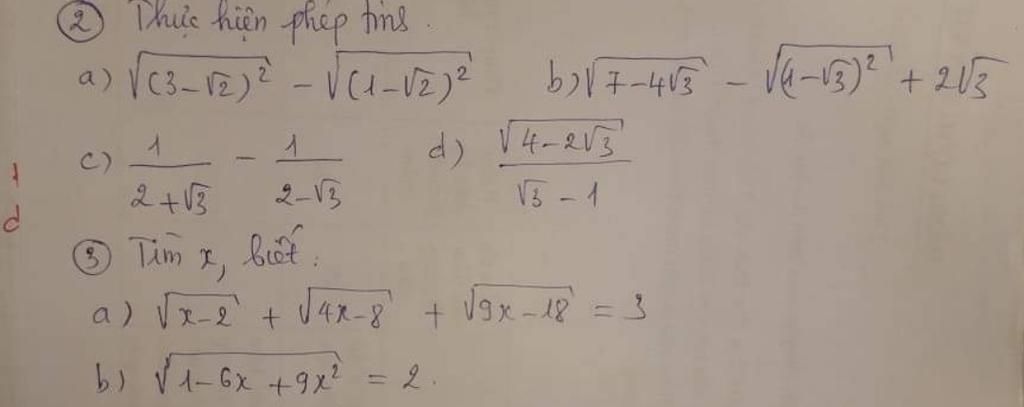 ② Thực hiện phép tính.
a) √((3-√2)²) - √((1-√2)²) b) √(7-4√3) - √((1-√3)²) + 2√3
c) 1/(2+√3) - 1/(2-√3) d) √(4-2√3)/(√3-1)
1
d
③ Tìm x, biết:
a) √(x-2) + √(4x-8) + √(9x-18) = 3
b) √(1-6x+9x²) = 2.